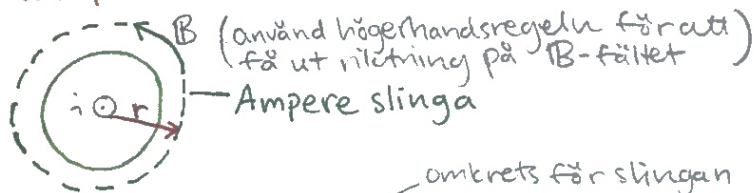 B (använd högerhandsregeln för att
få ut riktning på B-fältet)
i r Ampere slinga
omkrets för slingan